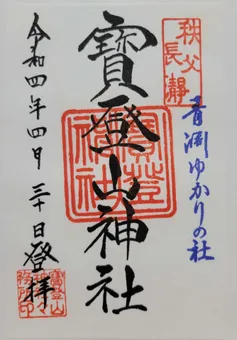 秩父
長瀞
青淵ゆかりの社
寳登山神社
寳登山神社
令和四年四月三十日登拝
寳登山
神社々
務所印